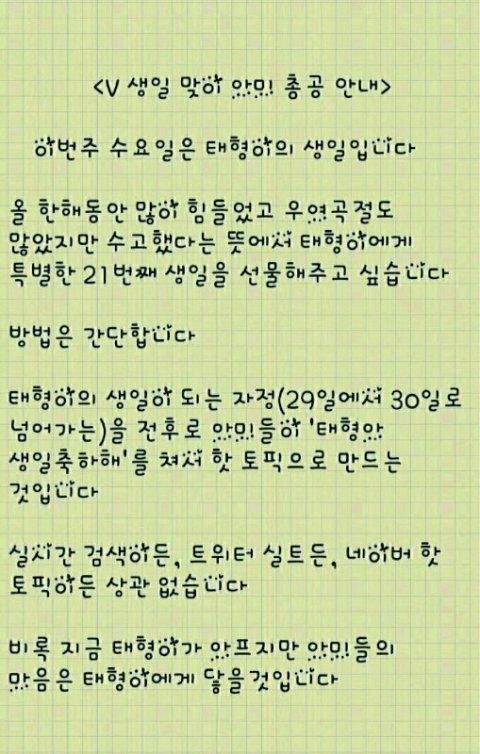 <V 생일 맞이 아미 총공 안내>
이번주 수요일은 태형이의 생일입니다
올 한해동안 많이 힘들었고 우여곡절도
많았지만 수고했다는 뜻에서 태형이에게
특별한 21번째 생일을 선물해주고 싶습니다
방법은 간단합니다
태형이의 생일이 되는 자정(29일에서 30일로
넘어가는)을 전후로 아미들이 '태형아
생일축하해'를 쳐서 핫 토픽으로 만드는
것입니다
실시간 검색이든, 트위터 실트든, 네이버 핫
토픽이든 상관 없습니다
비록 지금 태형이가 아프지만 아미들의
마음은 태형이에게 닿을것입니다